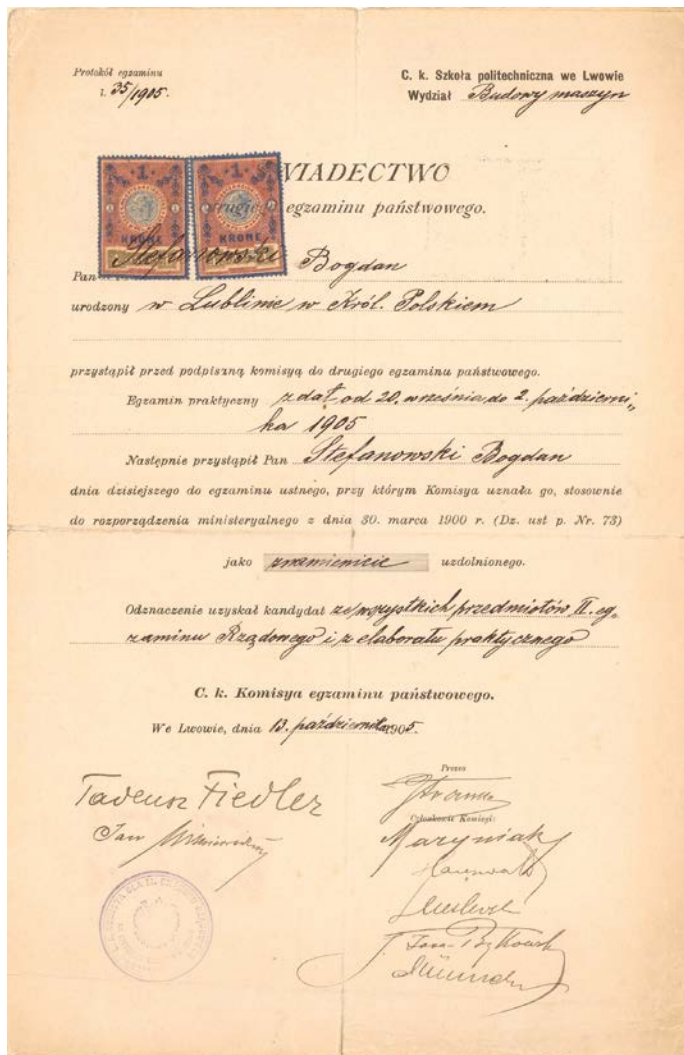 Protokół egzaminu
l. 35/1905.
C. k. Szkoła politechniczna we Lwowie
Wydział Budowy maszyn
WIADECTWO
drugiego egzaminu państwowego.
1 1
KRONE KRONE
Pan Stefanowski Bogdan
urodzony w Lublinie w Król. Polskiem
przystąpił przed podpisaną komisyą do drugiego egzaminu państwowego.
Egzamin praktyczny zdał od 20. września do 2. październi„
ka 1905
Następnie przystąpił Pan Stefanowski Bogdan
dnia dzisiejszego do egzaminu ustnego, przy którym Komisya uznała go, stosownie
do rozporządzenia ministeryalnego z dnia 30. marca 1900 r. (Dz. ust p. Nr. 73)
jako znamienicie uzdolnionego.
Odznaczenie uzyskał kandydat ze wszystkich przedmiotów II. eg„
zaminu Rządowego i z elaboratu praktycznego
C. k. Komisya egzaminu państwowego.
We Lwowie, dnia 13. października 1905.
Prezes
Tadeusz Fiedler
Członkowie Komisyi:
Jan
Maryniak